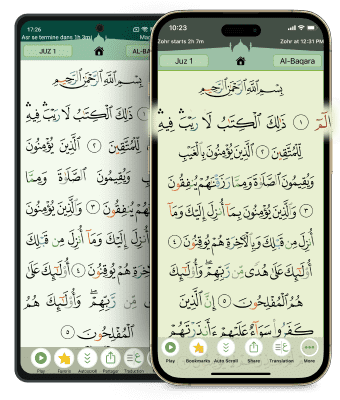 17:26
Asr se termine dans 1h 3m
JUZ 1
AL-BA
بِسْمِ ٱللَّهِ ٱلرَّحْمَٰنِ ٱلرَّحِيمِ
ذَٰلِكَ ٱلْكِتَٰبُ لَا رَيْبَ فِيهِ
لِّلْمُتَّقِينَ ٢ ٱلَّذِينَ يُؤْمِنُونَ
وَيُقِيمُونَ ٱلصَّلَوٰةَ وَمِمَّا
يُنفِقُونَ ٣ وَٱلَّذِينَ يُؤْمِنُونَ
أُنزِلَ إِلَيْكَ وَمَآ أُنزِلَ مِن قَبْلِكَ
هُمْ يُوقِنُونَ ٤ أُو۟لَٰٓئِكَ عَلَىٰ
مِّن رَّبِّهِمْ ۖ وَأُو۟لَٰٓئِكَ هُمُ
ٱلْمُفْلِحُونَ ٥
Play
Favoris
Partager
Traduction
10:23
Zohr starts 2h 7m
Zohr at 12:31 PM
Juz 1
Al-Baqara
بِسْمِ ٱللَّهِ ٱلرَّحْمَٰنِ ٱلرَّحِيمِ
الٓمٓ ١ ذَٰلِكَ ٱلْكِتَٰبُ لَا رَيْبَ فِيهِ
لِّلْمُتَّقِينَ ٢ ٱلَّذِينَ يُؤْمِنُونَ بِٱلْغَيْبِ
وَيُقِيمُونَ ٱلصَّلَوٰةَ وَمِمَّا رَزَقْنَٰهُمْ يُنفِقُونَ
٣ وَٱلَّذِينَ يُؤْمِنُونَ بِمَآ أُنزِلَ إِلَيْكَ وَمَآ
أُنزِلَ مِن قَبْلِكَ وَبِٱلْءَاخِرَةِ هُمْ يُوقِنُونَ ٤
أُو۟لَٰٓئِكَ عَلَىٰ هُدًى مِّن رَّبِّهِمْ ۖ وَأُو۟لَٰٓئِكَ
هُمُ ٱلْمُفْلِحُونَ ٥ إِنَّ ٱلَّذِينَ
كَفَرُوا۟ سَوَآءٌ عَلَيْهِمْ ءَأَنذَرْتَهُمْ
Play
Bookmarks
Auto Scroll
Share
Translation
More